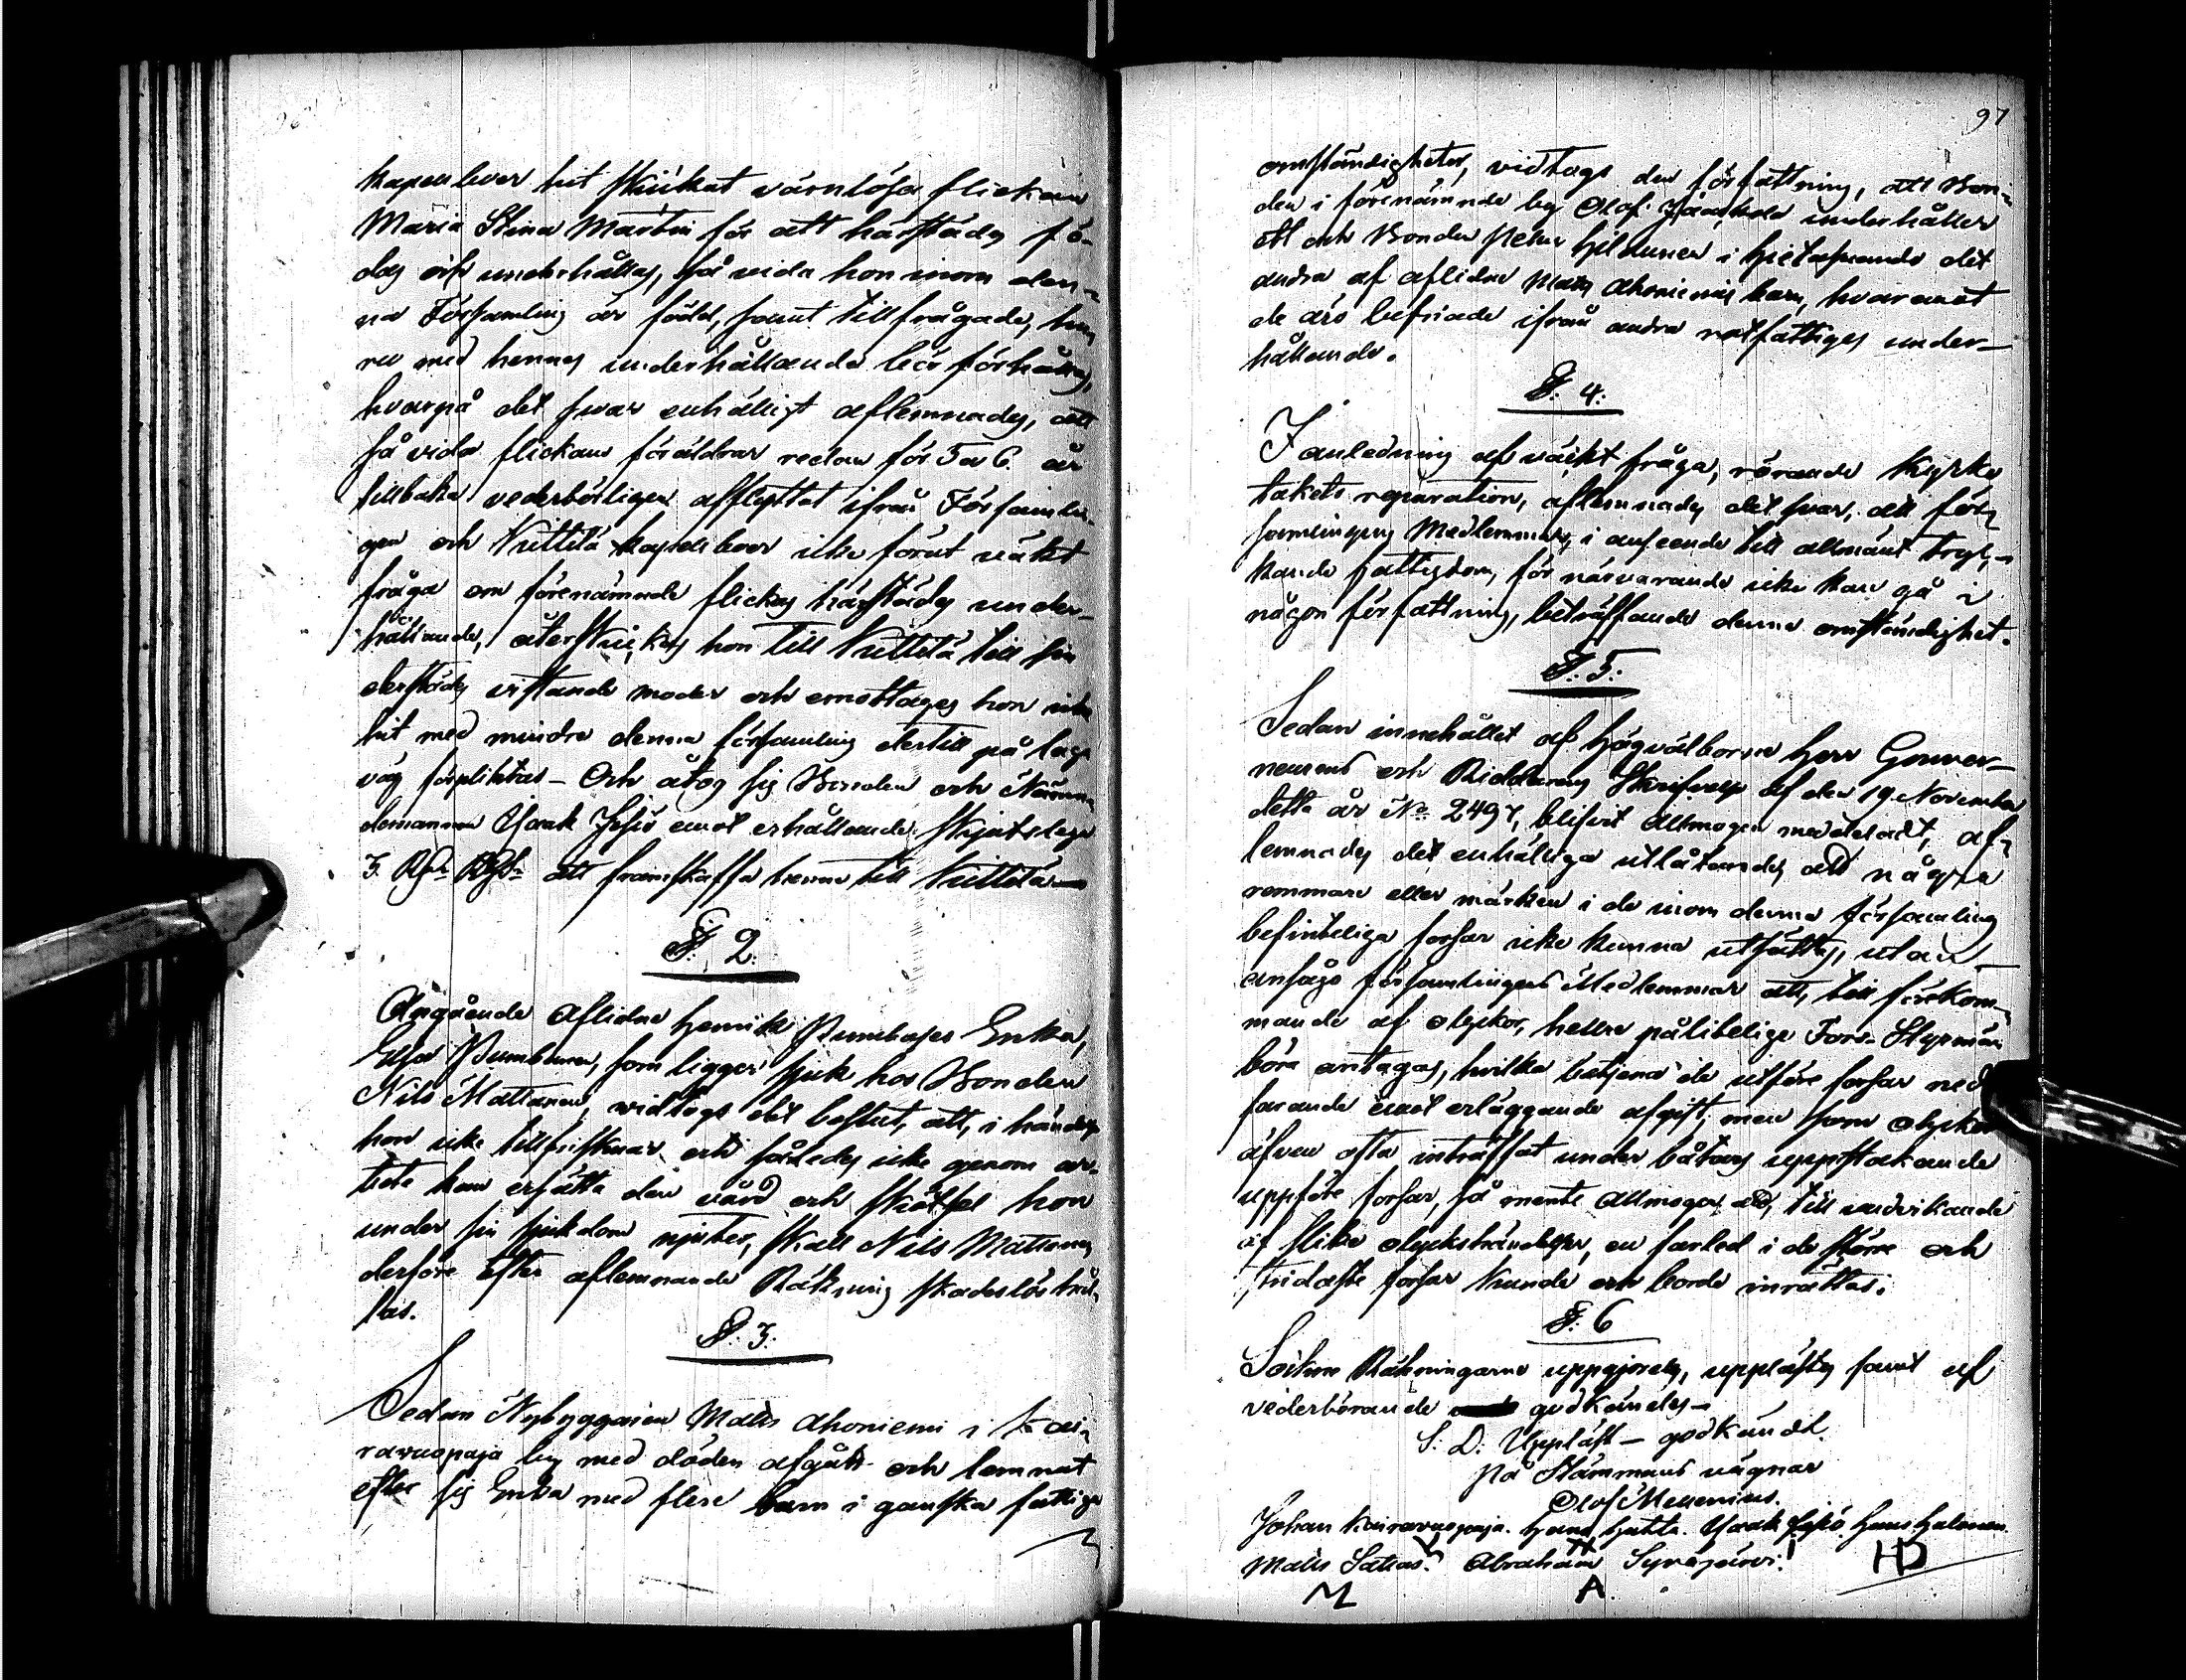 kapellever hit skickat värnlösa flickan
Maria Stina Martin för att härstädes fö-
das och underhållas, så vida hon inom den-
na Församling är född, samt tillfrågade, huru
med hennes underhållande bör förhållas,
hvarpå det svar enhälligt aflemnades, att
så vida flickans föräldrar redan för 5 a 6. år
tillbaka vederbörligen afflyttat ifrån Församlin-
gen och Kittilä kapellboer icke förut väkt
fråga om förenämnde flickas härstädes under-
hållande, återskickas hon till Kittilä till sin
derstädes vistande moder och emottages hon icke
hit med mindre denna församling dertill på laga
väg förpliktas – Och åtog sig Bonden och Nämnde-
mannen Isaak Jesiö emot erhållande Skjutslega
3. Rd att framskaffa henne till Kittilä
§. 2.
Angående Aflidne Henrik Enka,
Elsa som ligger sjuk hos Bonden
Nils Mattanen, vidtogs det beslut, att, i händelse
hon icke tillfrisknar och således icke genom ar-
bete kan ersätta den vård och skötsel hon
under sin sjukdom njuter, skall Nils Mattanen
derföre efter aflemnande Räkning skadeslös hål-
las.
§. 3.
Sedan Nybyggaren Matts Ahoniemi i Kai-
ravuopaja by med döden afgått och lemnat
efter sig Enka med flere barn i ganska fattiga
97
omständigheter, vidtogs den författning, att Bon-
den i förenämnde by Olof underhåller
ett och Bonden Petter i det
andra af aflidne Matts Ahoniemis barn, hvaremot
de äro befriade ifrån andra rotfattiges under-
hållande.
§. 4.
I anledning af väckt fråga, rörande Kyrko
takets reparation, aflemnades det svar, att för-
samlingens Medlemmar, i anseende till allmänt tryc-
kande fattigdom, för närvarande icke kan gå i
någon författning, beträffande denna omständighet.
§. 5.
Sedan innehållet af Högvälborne Herr Gouver-
neurens och Riddarens Skrifvelse af den 19. November
detta år No 2497, blifvit Allmogen meddeladt, af-
lemnades det enhälliga utlåtandes att några
remmare eller märken i de inom denna församling
befinteliga forsar icke kunna utsättas, utan
ansågo församlingens Medlemmar att, till förekom-
mande af olyckor, hellre pålitelige Fors-Styrmän
böra antagas, hvilka betjena de utföre forsar ned
farande emot erläggande afgift; men som olyckor
äfven ofta inträffat under båtars uppstakande
uppföre forsar, så mente Allmogen att, till undvikande
af slike olyckshändelser, en farled i de större och
stridaste forsar kunde och borde inrättas.
§. 6
Sockne Räkningarne uppgjordes, upplästes samt af
vederbörande godkändes –
S. D. Uppläst – godkändt.
på Stämmans vägnar
Olof Mellenius.
Johan Kairavuopaja. Hans Isaak Jesiö. Hans Halonen.
Matts Sattas. Abraham Syväjärvi.
M A. HD